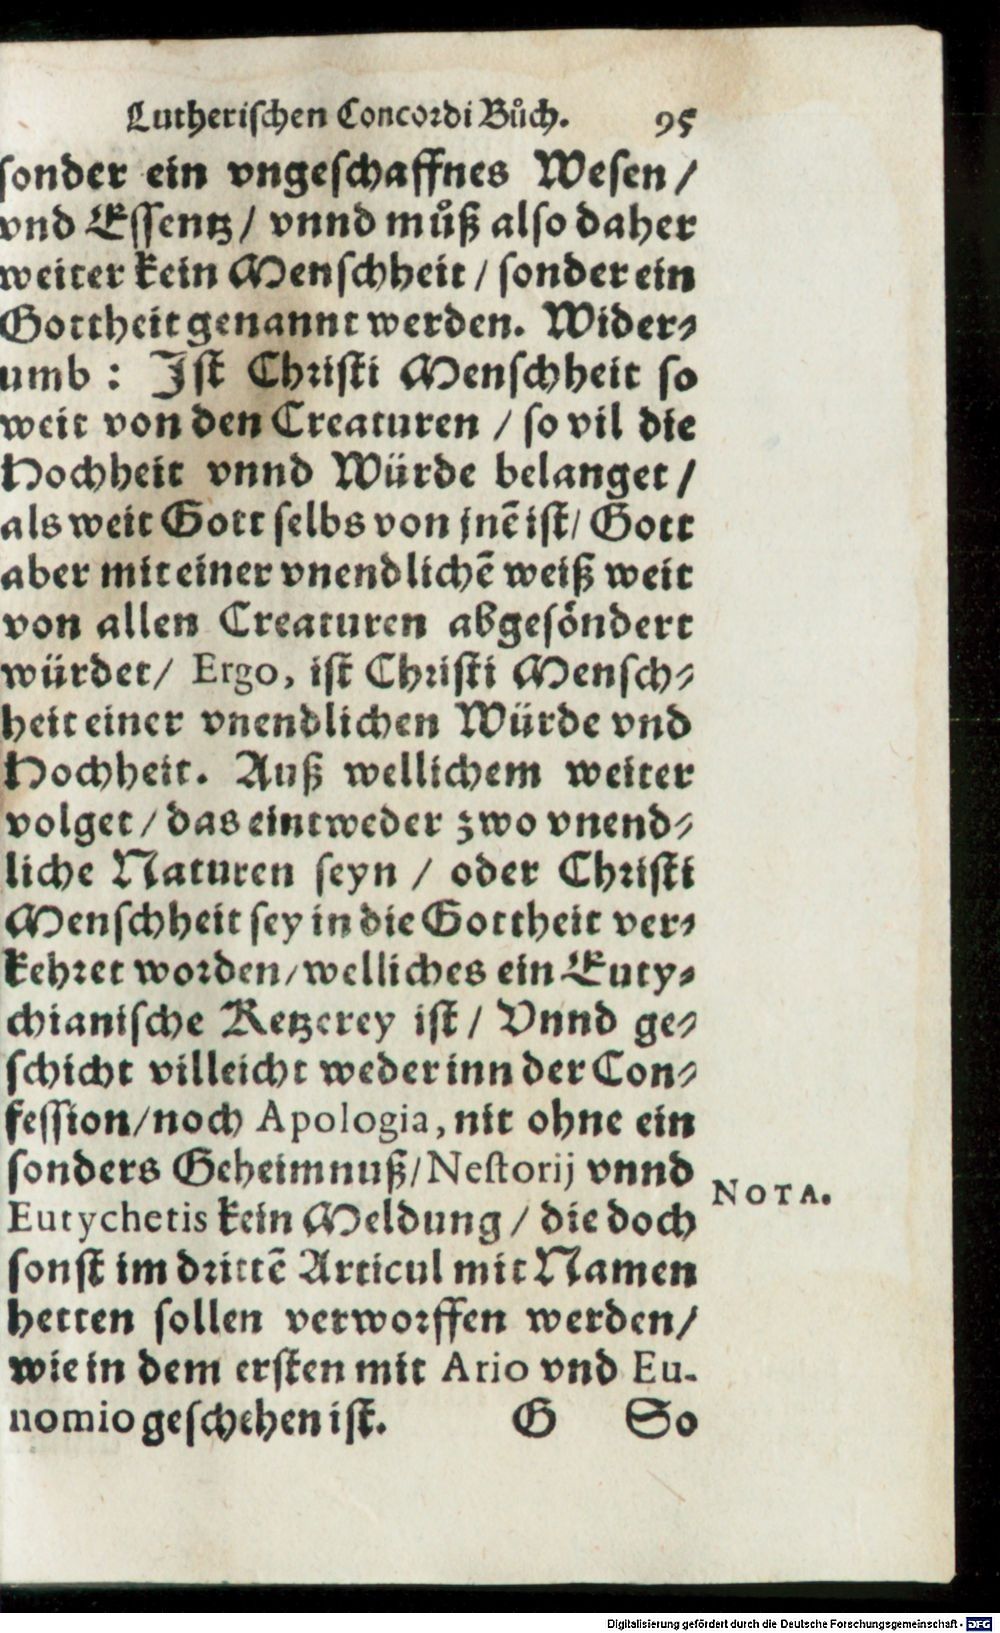 Lutherischen Concordi Bůch. 95
sonder ein vngeschaffnes Wesen /
vnd Essentz / vnnd můß also daher
weiter kein Menschheit / sonder ein
Gottheit genannt werden. Wider⸗
umb : Jst Christi Menschheit so
weit von den Creaturen / so vil die
Hochheit vnnd Würde belanget /
als weit Gott selbs von jnẽ ist / Gott
aber mit einer vnendlichẽ weiß weit
von allen Creaturen abgesöndert
würdet / Ergo, ist Christi Mensch⸗
heit einer vnendlichen Würde vnd
Hochheit. Auß wellichem weiter
volget / das eintweder zwo vnend⸗
liche Naturen seyn / oder Christi
Menschheit sey in die Gottheit ver⸗
kehret worden / welliches ein Euty⸗
chianische Ketzerey ist / Vnnd ge⸗
schicht villeicht weder inn der Con⸗
fession / noch Apologia, nit ohne ein
sonders Geheimnuß / Nestorij vnnd
NOTA.
Eutychetis kein Meldung / die doch
sonst im drittẽ Articul mit Namen
hetten sollen verworffen werden /
wie in dem ersten mit Ario vnd Eu-
nomio geschehen ist. G So
Digitalisierung gefördert durch die Deutsche Forschungsgemeinschaft - DFG